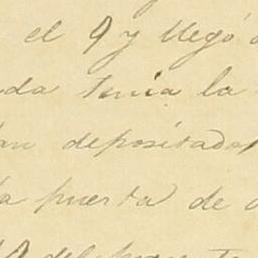 el 9 y llegó
da tenia la
an depositada
a puerta de